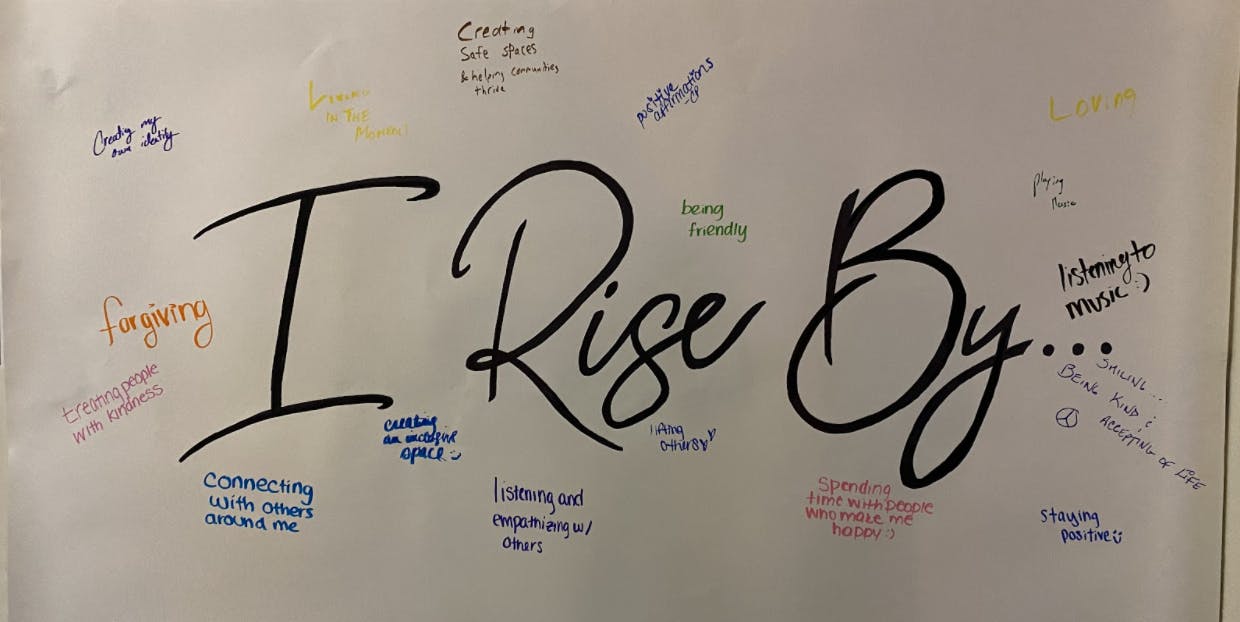 Creating
Safe spaces
& helping communities
thrive
positive
affirmations
-CP
Living
IN THE
MOMENT!
Loving
Creating my
own identity
playing
Music
being
friendly
I Rise By...
listening to
music :)
forgiving
treating people
with kindness
SMILING...
BEING KIND &
ACCEPTING OF LIFE
creating
an inclusive
space :)
lifting
others
Connecting
with others
around me
listening and
empathizing w/
others
Spending
time with people
who make me
happy :)
Staying
positive :)